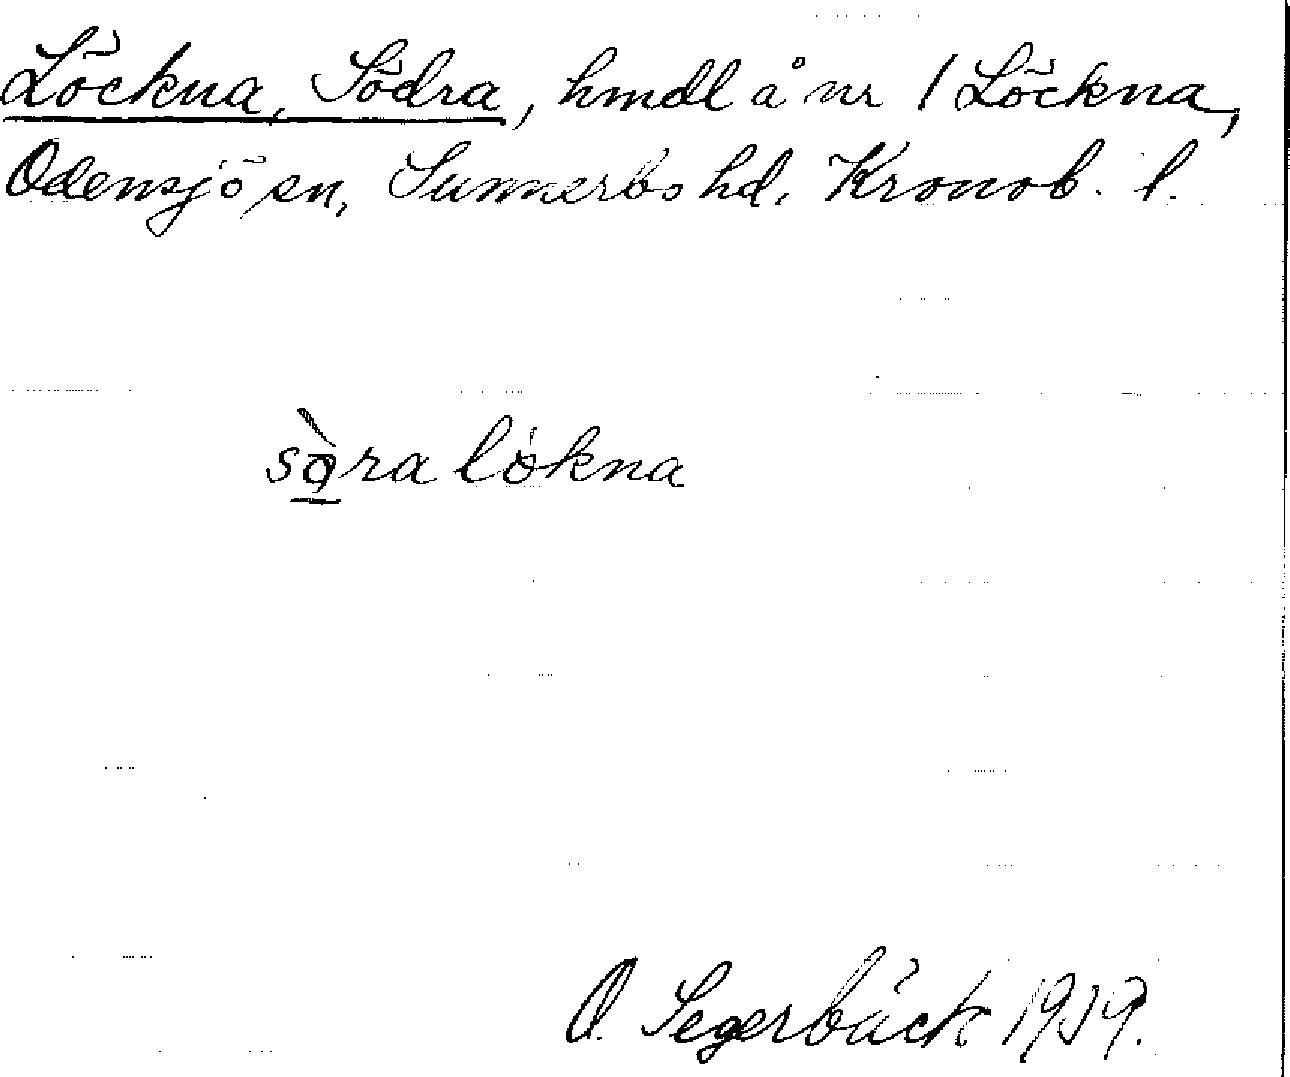 Löckna, Södra, hmdl å nr 1 Löckna,
Odensjö sn, Sunnerbo hd, Kronob. l.
sǫ̀ra lökna
O. Segerbäck 1919.